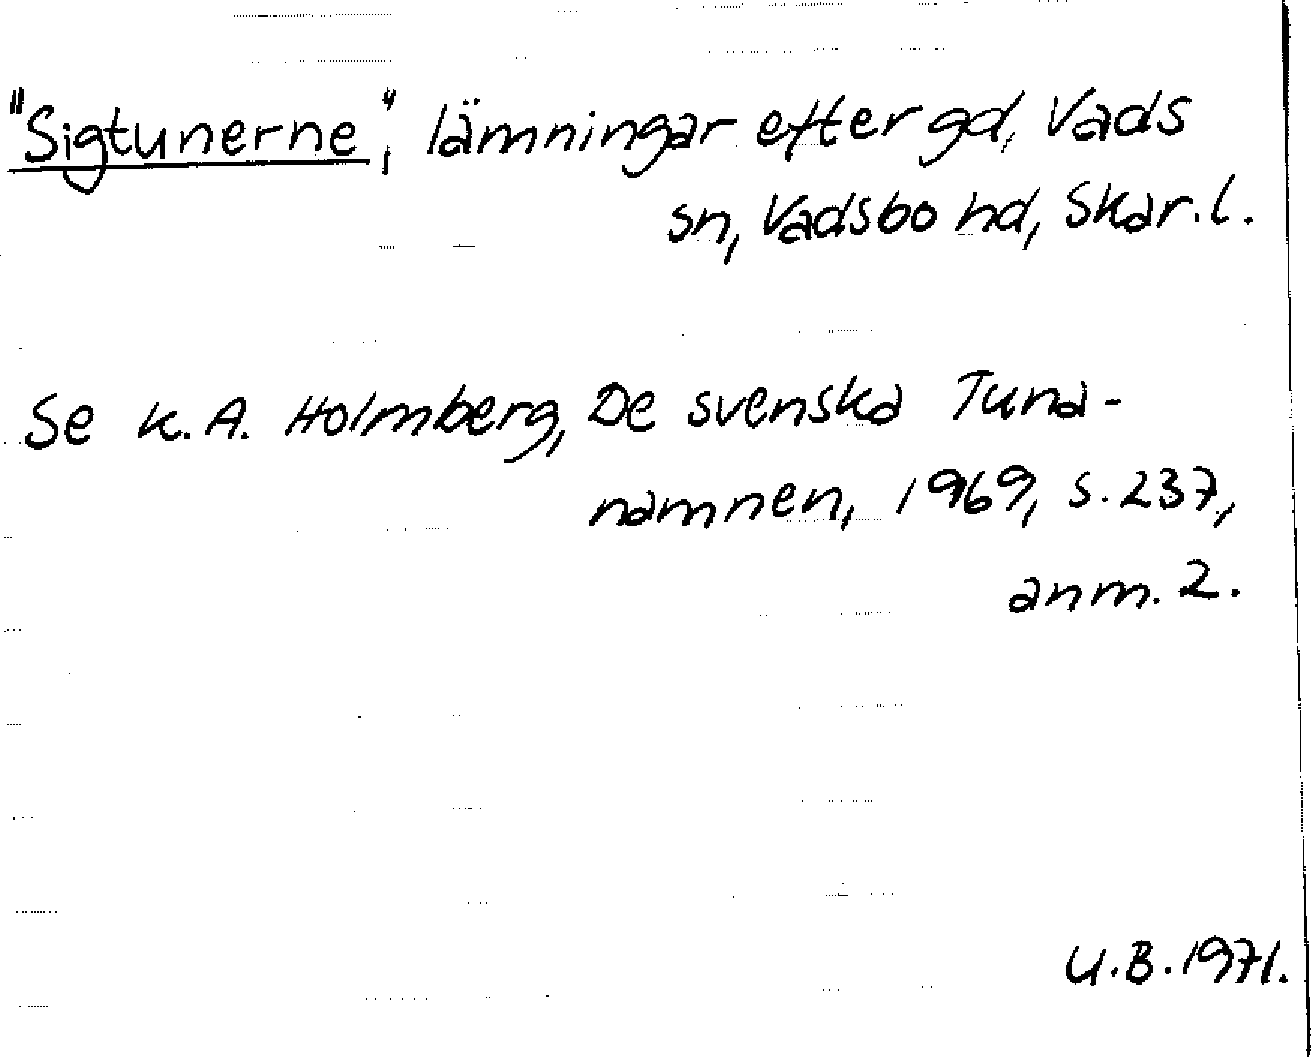 "Sigtunerne", lämningar efter gd, Vads
sn, Vadsbo hd, Skar.l.
Se K.A. Holmberg, De svenska Tuna-
namnen, 1969, s. 237,
anm. 2.
U.B. 1971.